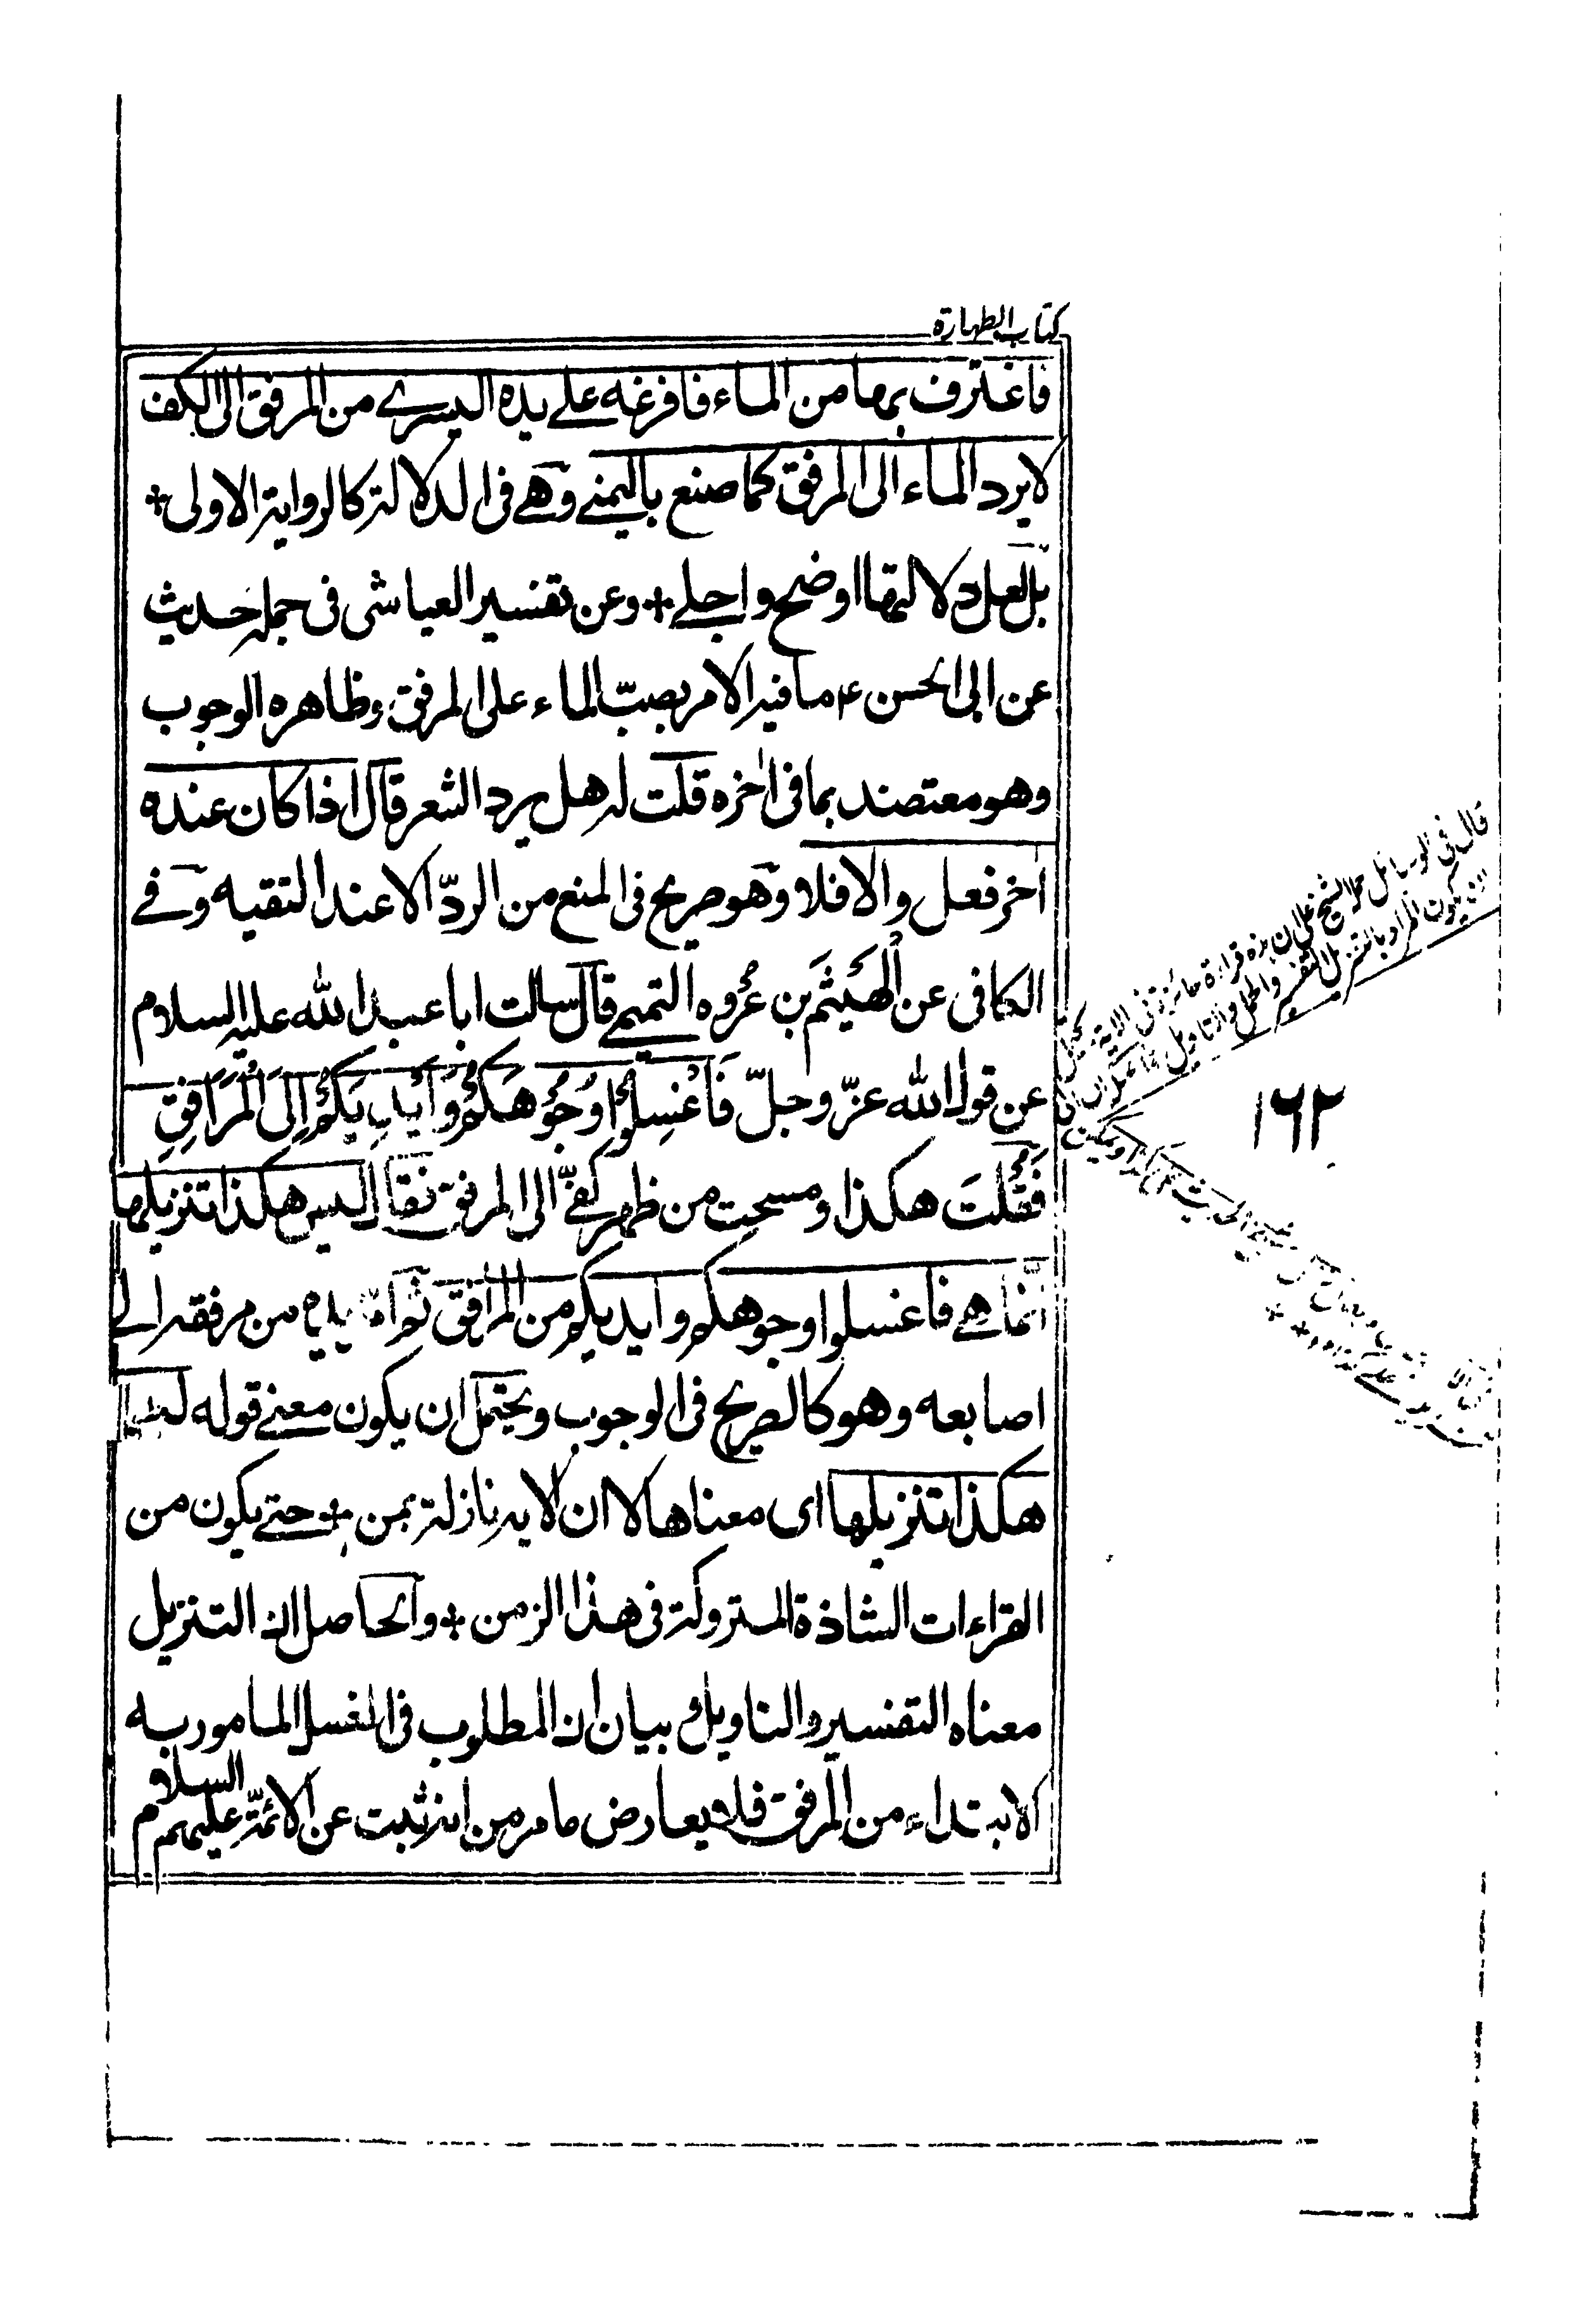 كتاب الطهارة
فاغترف بها من الماء فافرغه على يده اليسرى من المرفق الى الكف
لا يرد الماء الى المرفق كما صنع باليمنى وهى فى الدلالة كالرواية الاولى +
بل لعل دلالتها اوضح واجلى + وعن تفسير العياشى فى جملة حديث
عن ابى الحسن ع ما فيه الامر بصبّ الماء على المرفق وظاهره الوجوب
وهو معتضد بما فى اخره قلت له هل يرد الشعر قال اذا كان عنده
اخر فعل والا فلا وهو صريح فى المنع من الردّ الا عند التقيه وفى
الكافى عن الهَيثَم بن عُروه التميمى قال سالت ابا عبد الله عليه السلام
عن قول الله عزّ وجلّ فَاغْسِلُوا وُجُوهَكُمْ وَاَيدِيَكُمْ اِلَى الْمَرَافِقِ
فَقُلتَ هكذا ومسحت من ظهر كفّى الى المرفق فقال ليس هكذا تنزيلها
انّما هى فاغسلوا وجوهكم وايديكم من المرافق ثم امرّ يده من مرفقه الى
اصابعه وهو كالصريح فى الوجوب ويحتمل ان يكون معنى قوله ليس
هكذا تنزيلها اى معناها لا ان الايه نازلة بمن + حتى يكون من
القراءات الشاذة المتروكة فى هذا الزمن + والحاصل ان التنزيل
معناه التفسير والتاويل وبيان ان المطلوب فى الغسل المامور به
الابتداء من المرفق فلا يعارض ما مر من انه ثبت عن الائمّة عليهم السلام
قال فى الوسائل حمل الشيخ على ان هذه قراءة جائزة فى الآية ويحتمل
ان يكون المراد بالتنزيل التفسير والحمل والتاويل
١٦٢